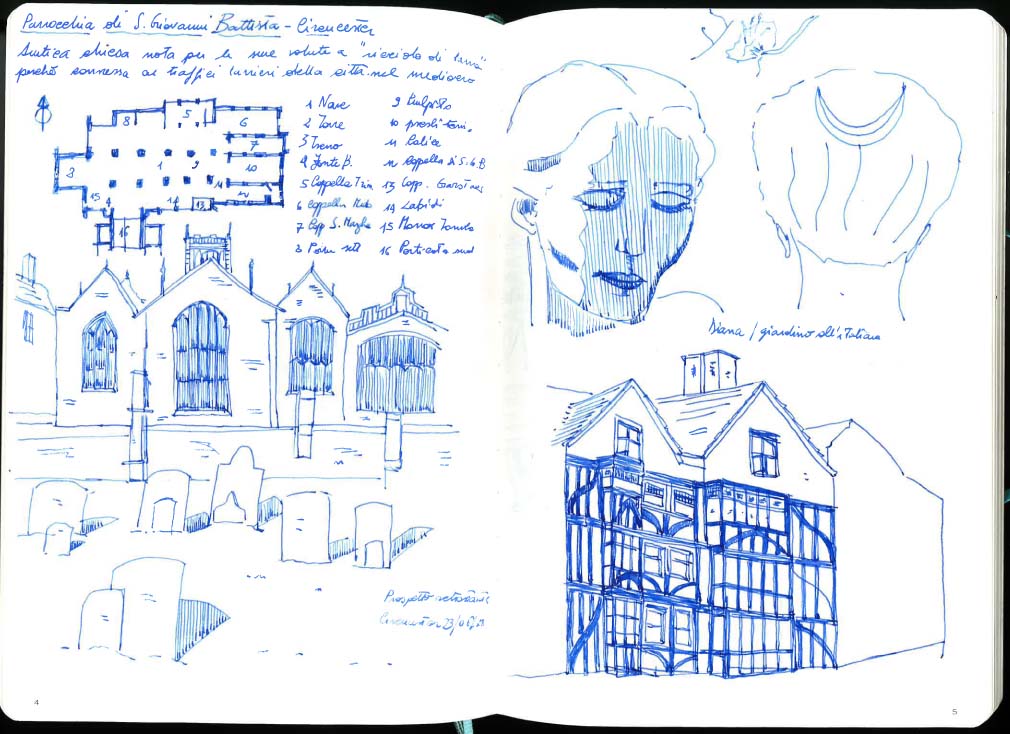 Parrocchia di S. Giovanni Battista - Cirencester
Antica chiesa nota per le sue volute a "ricciolo di lana"
perché connessa ai traffici lanieri della città nel medioevo
1 Nave
2 Torre
3
4 Fonte B.
5 Cappella Trin
6 Cappella
7 Cap S.
8
9 Pulpito
10
11 Calice
12 Cappella di S. G. B
13 Capp.
14 Lapidi
15
16 Portico a sud
8
5
6
7
3
1
9
10
11
12
15
4
14
13
16
Prospetto
Cirencester 23/
Diana / giardino all'italiana
4
5